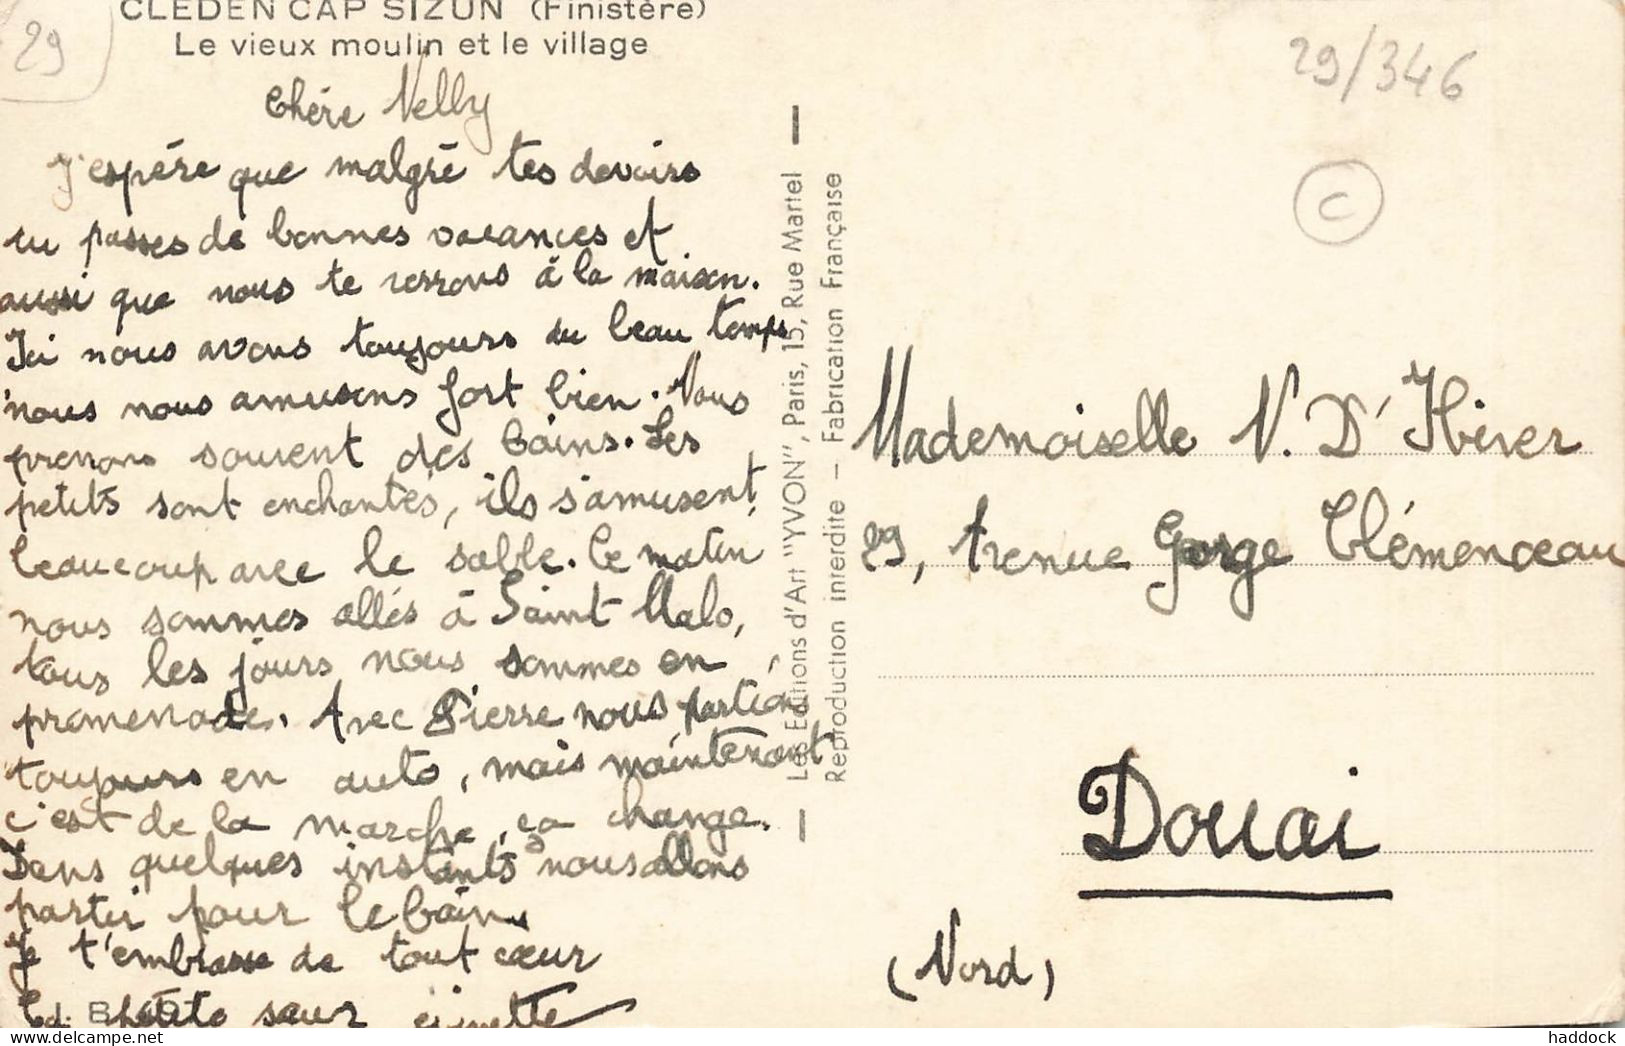 CLEDEN CAP SIZUN (Finistère)
Le vieux moulin et le village
29
29/346
C
Chère Nelly
J'espère que malgré tes devoirs
tu passes de bonnes vacances et
aussi que nous te verrons à la maison.
Ici nous avons toujours du beau temps
nous nous amusons fort bien. Nous
prenons souvent des bains. Les
petits sont enchantés, ils s'amusent
beaucoup avec le sable. Ce matin
nous sommes allés à Saint Malo,
tous les jours nous sommes en
promenade. Avec Pierre nous partions
toujours en auto, mais maintenant
c'est de la marche, ça change.
Dans quelques instants nous allons
partir pour le bain.
Je t'embrasse de tout cœur
petite sœur
Les Editions d'Art "YVON", Paris, 15, Rue Martel
Reproduction interdite — Fabrication Française
Mademoiselle N. D'Hiver
29, Avenue Gorge Clémenceau
Douai
(Nord)
haddock